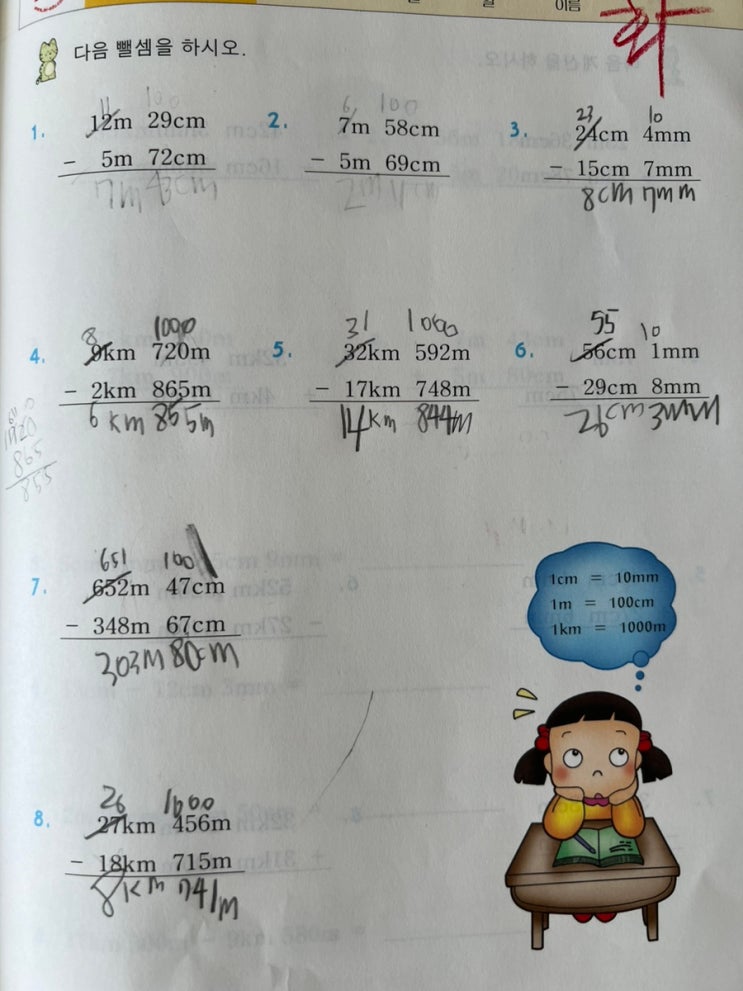 월 이름
화
다음 뺄셈을 하시오.
11 100
1. 12m 29cm
− 5m 72cm
7m 43cm
6 100
2. 7m 58cm
− 5m 69cm
2m
23 10
3. 24cm 4mm
− 15cm 7mm
8cm 7mm
8 1000
4. 9km 720m
− 2km 865m
6km 855m
865
855
31 1000
5. 32km 592m
− 17km 748m
14km 844m
55 10
6. 56cm 1mm
− 29cm 8mm
26cm 3mm
651 100
7. 652m 47cm
− 348m 67cm
303m 80cm
1cm = 10mm
1m = 100cm
1km = 1000m
26 1000
8. 27km 456m
− 18km 715m
8km 741m